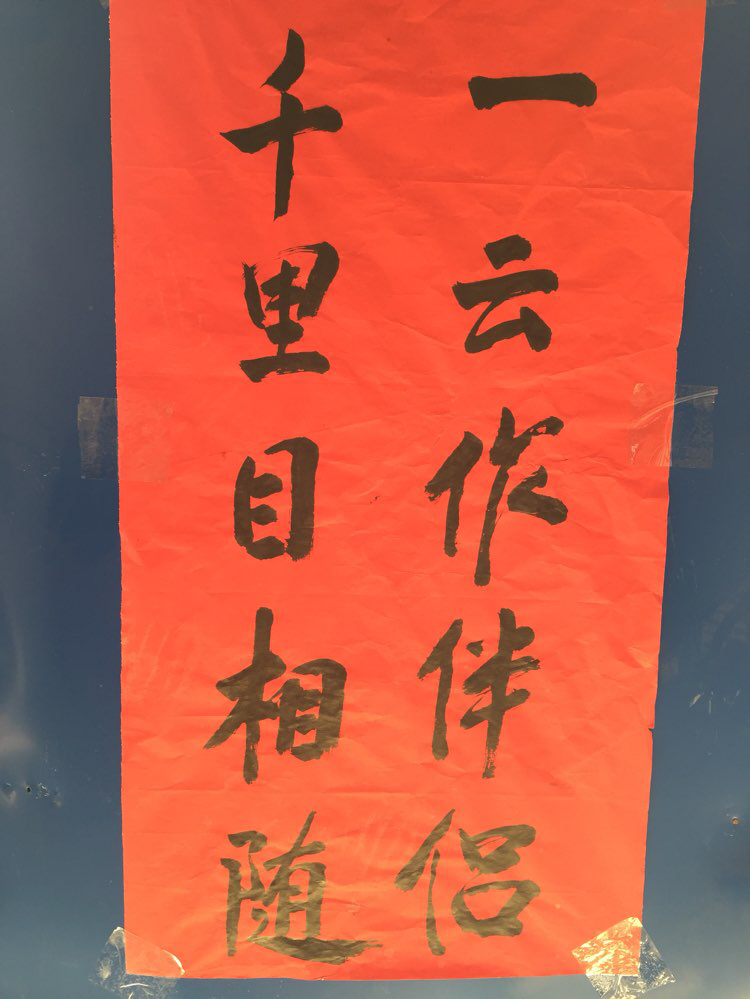 一云作伴侣
千里目相随